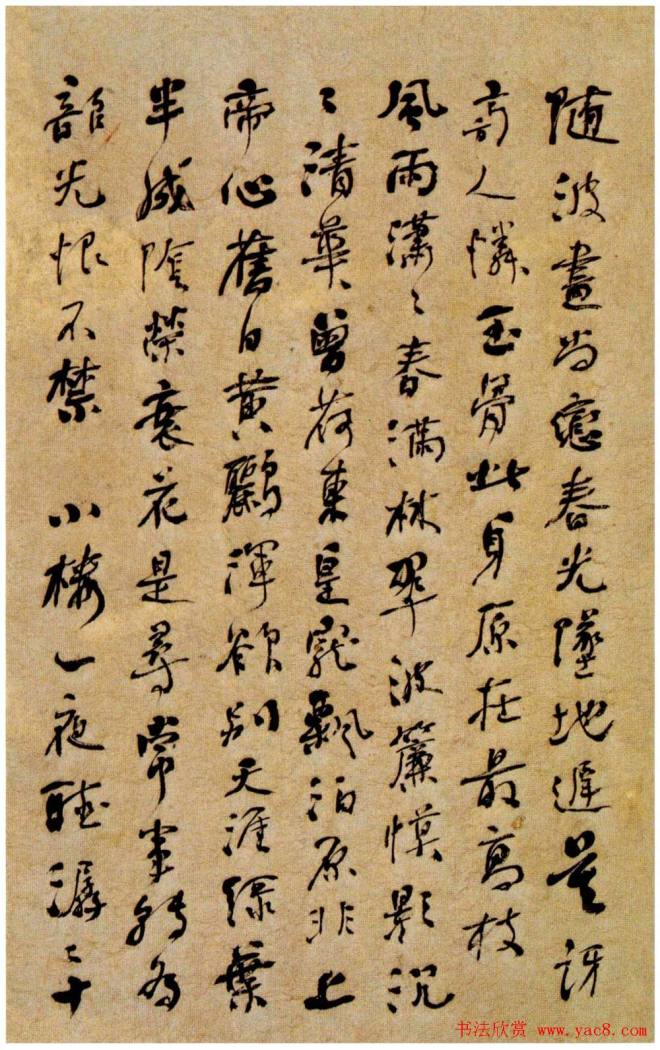 隨波盡尚戀春光墜地遲莫訝
旁人憐玉骨此身原在最高枝
風雨瀟〻春滿林翠波簾幙影沉
〻清華曾荷東皇寵飄泊原非上
帝心舊日黃鸝渾欲別天涯綠葉
半成陰榮衰花是尋常事轉為
韶光恨不禁 小樓一夜聽潺〻十
书法欣赏 www.yac8.com